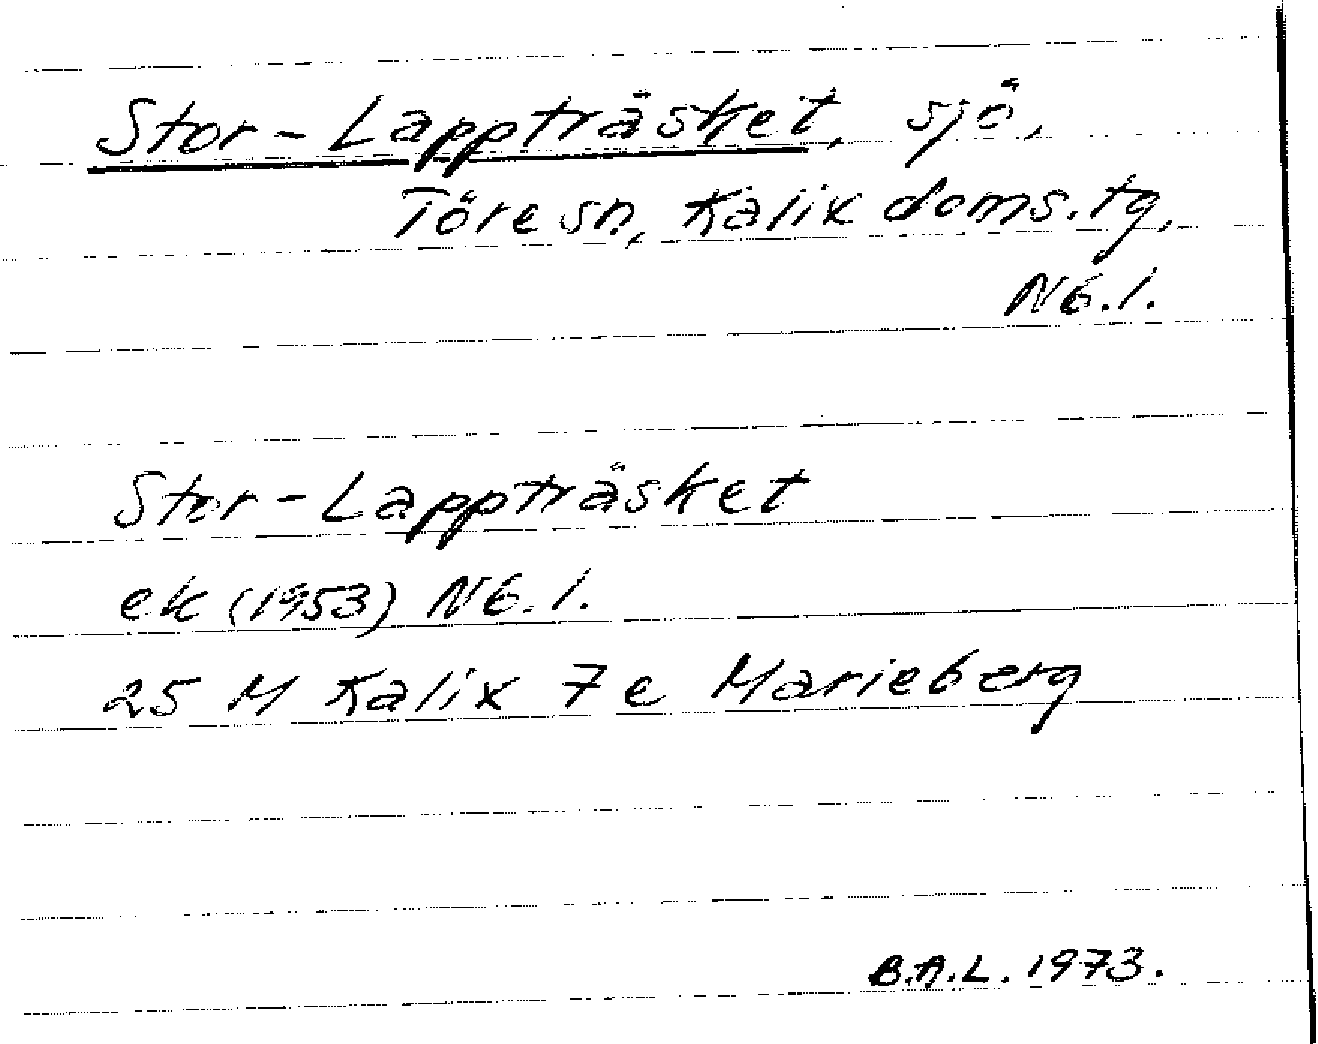 Stor-Lappträsket, sjö,
Töre sn, Kalix doms.tg,
Nb.l.
Stor-Lappträsket
ek (1953) Nb.l.
25 M Kalix 7e Marieberg
B.A.L. 1973.